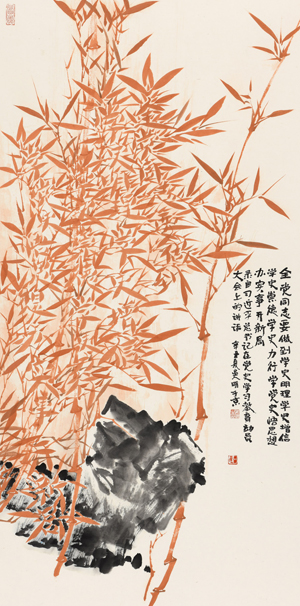 全党同志要做到学史明理学史增信
学史崇德学史力行学党史悟思想
办实事开新局
录自习近平总书记在党史学习教育动员
大会上的讲话 辛丑夏